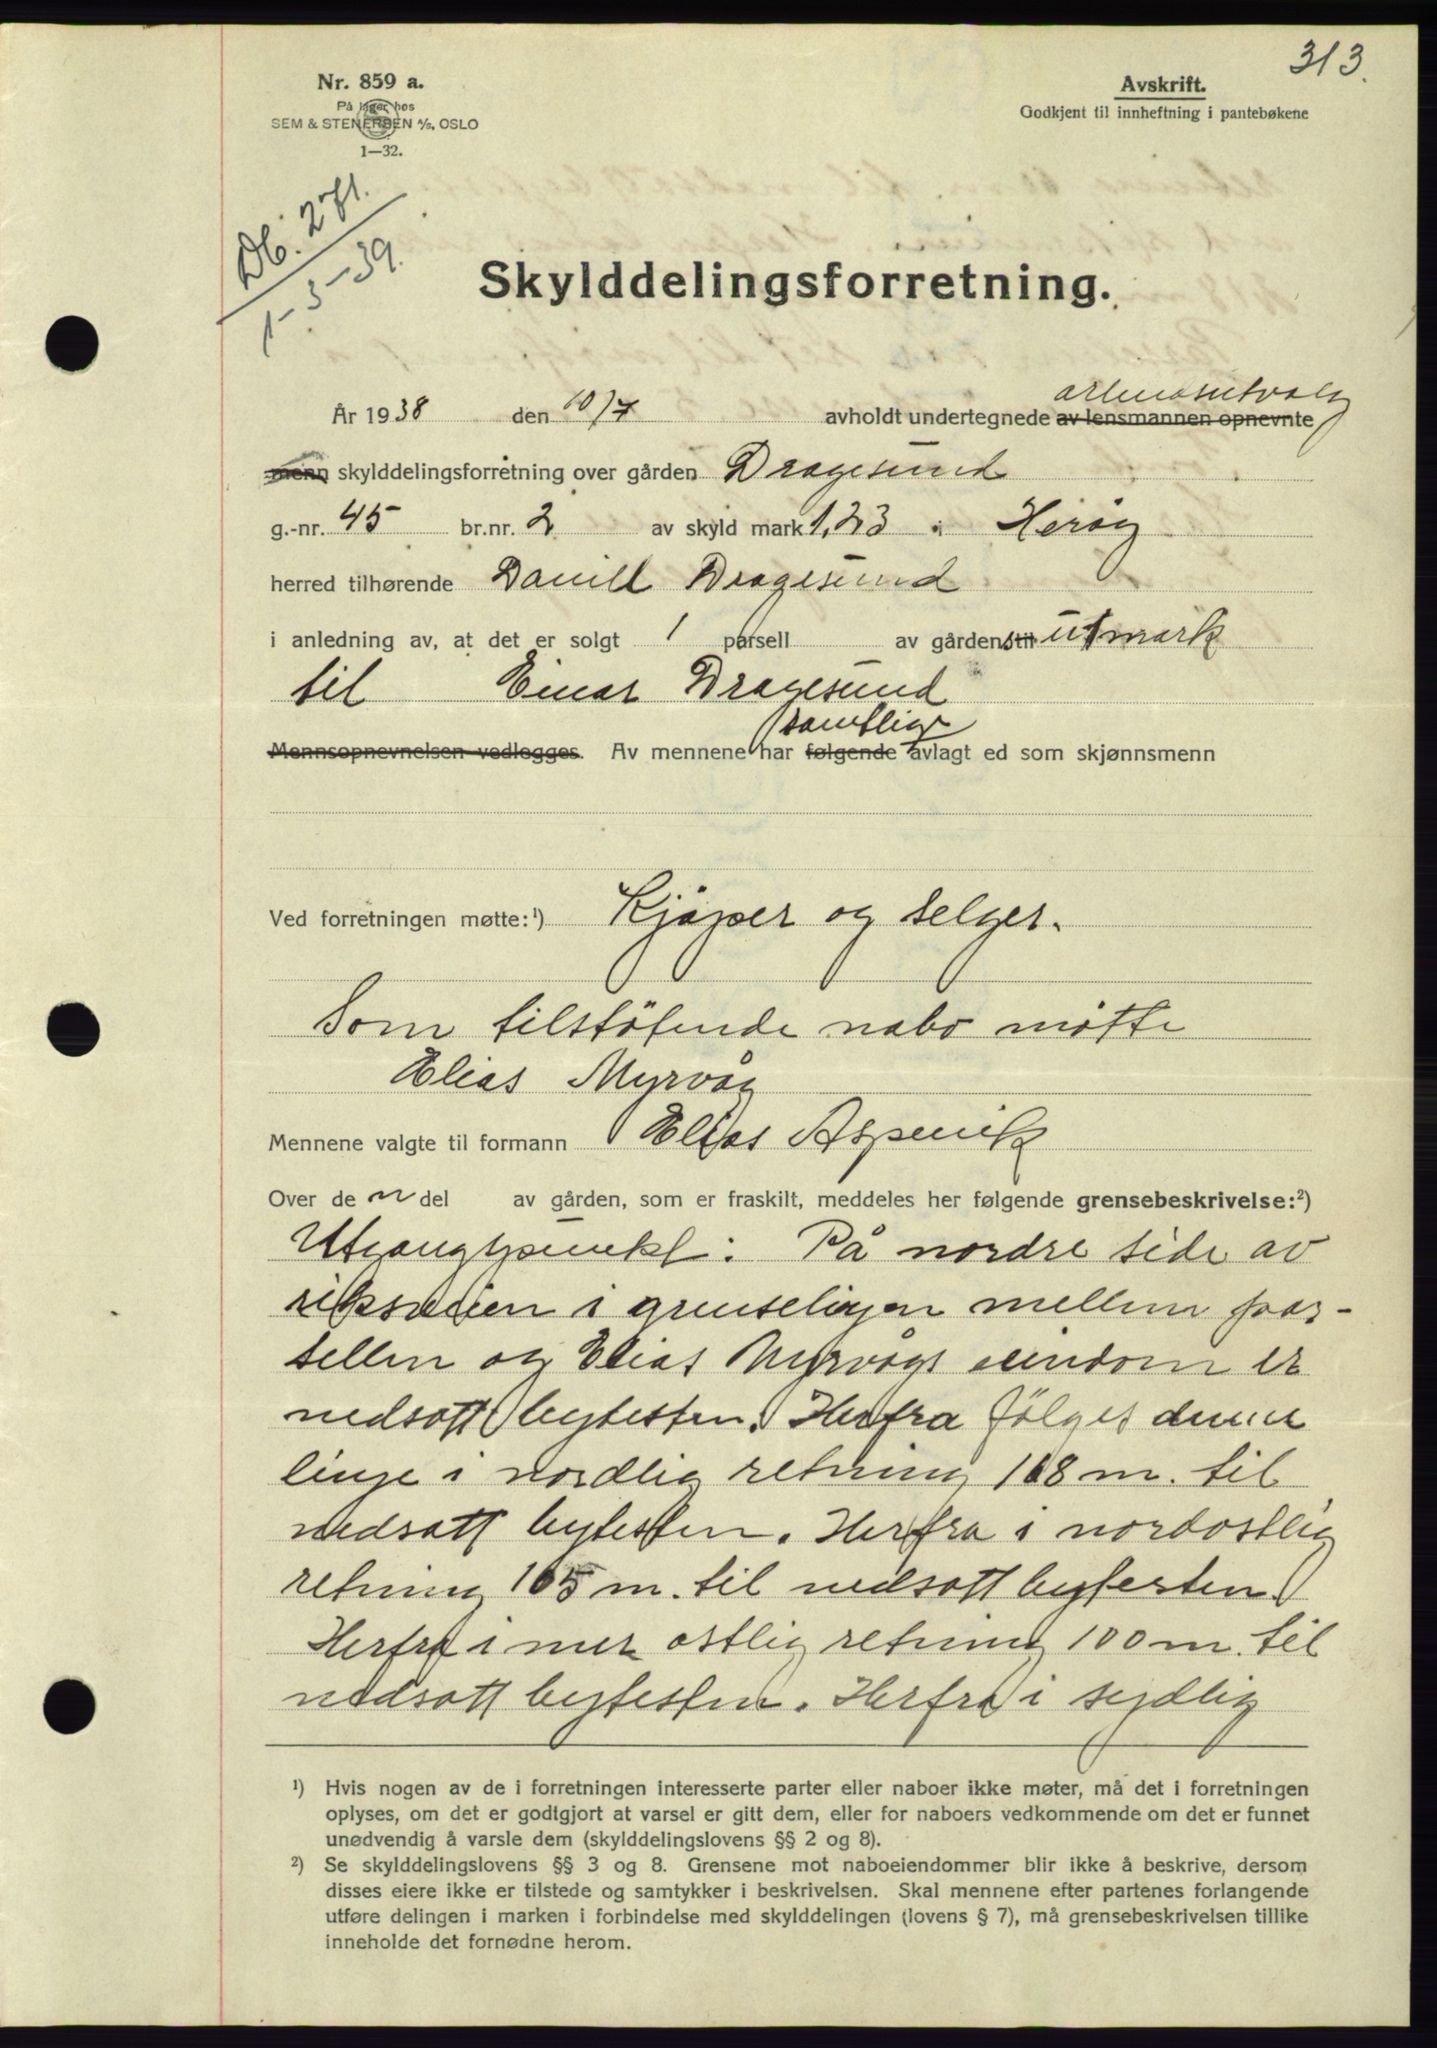 313.
Nr. 859 a.
På lager hos
SEM & STENERSEN A/S, OSLO
1—32.
Avskrift.
Godkjent til innheftning i pantebøkene
Db. 271.
1-3-39.
Skylddelingsforretning.
arbeidsutvalg
År 1938 den 10/7 avholdt undertegnede av lensmannen opnevnte
menn skylddelingsforretning over gården Dragesund
g.-nr. 45 br.nr. 2 av skyld mark 1,23 i Herøy
herred tilhørende Daniel Dragesund
i anledning av, at det er solgt 1 parsell av gårdens til utmark
til Einar Dragesund
samtlige
Mennsopnevnelsen vedlegges. Av mennene har følgende avlagt ed som skjønnsmenn
Ved forretningen møtte:¹) Kjøper og selger.
Som tilstøtende nabo møtte
Elias Myrvåg
Mennene valgte til formann Elias Aspevik
Over de n del av gården, som er fraskilt, meddeles her følgende grensebeskrivelse:²)
Utgangspunkt: På nordre side av
riksveien i grenselinjen mellem par-
sellen og Elias Myrvågs eiendom er
nedsatt bytesten. Herfra følges denne
linje i nordlig retning 168 m. til
nedsatt bytesten. Herfra i nordostlig
retning 165 m. til nedsatt bytesten.
Herfra i mer ostlig retning 100 m. til
nedsatt bytesten. Herfra i sydlig
¹) Hvis nogen av de i forretningen interesserte parter eller naboer ikke møter, må det i forretningen
oplyses, om det er godtgjort at varsel er gitt dem, eller for naboers vedkommende om det er funnet
unødvendig å varsle dem (skylddelingslovens §§ 2 og 8).
²) Se skylddelingslovens §§ 3 og 8. Grensene mot naboeiendommer blir ikke å beskrive, dersom
disses eiere ikke er tilstede og samtykker i beskrivelsen. Skal mennene efter partenes forlangende
utføre delingen i marken i forbindelse med skylddelingen (lovens § 7), må grensebeskrivelsen tillike
inneholde det fornødne herom.